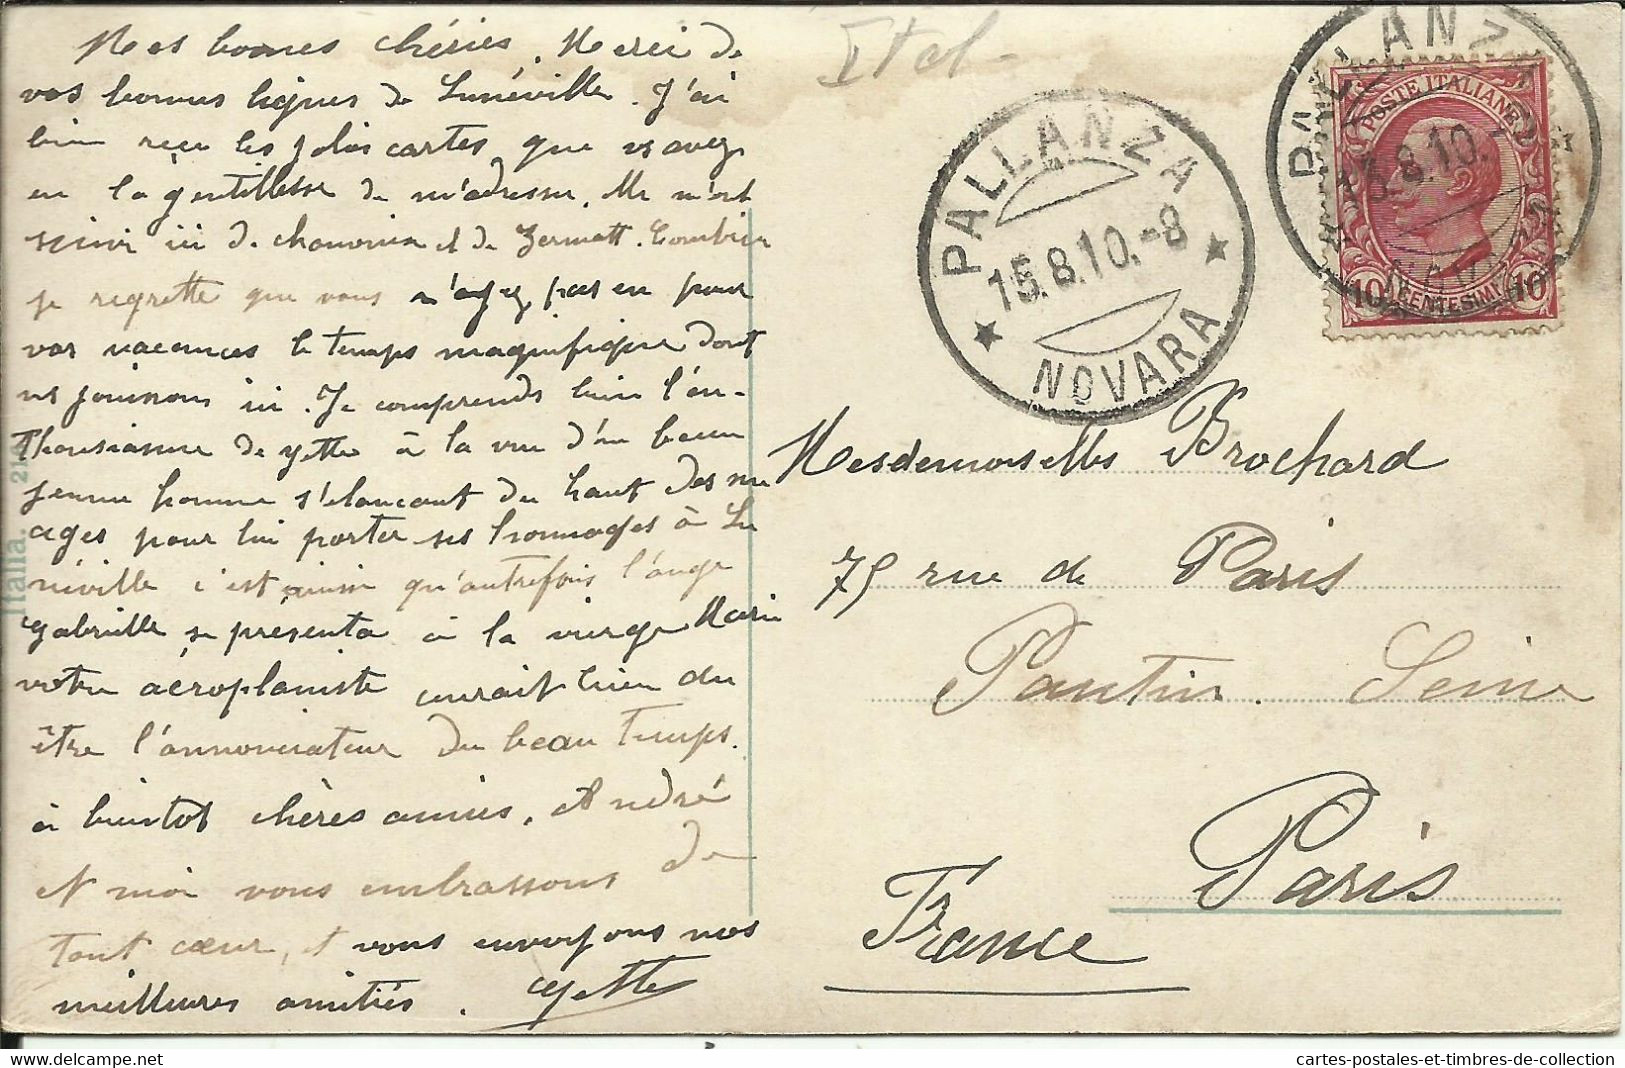 Mes bonnes chéries. Merci de
vos bonnes lignes de Lunéville. J'ai
bien reçu les jolies cartes que vs avez
eu la gentillesse de m'adresser. Elles m'ont
suivi ici de chamonix et de Zermatt. Combien
je regrette que vous n'ayez pas eu pour
vos vacances le temps magnifique dont
ns jouissons ici. Je comprends bien l'en-
thousiasme de yette à la vue d'un beau
jeune homme s'élançant du haut des nu
ages pour lui porter ses hommages à Lu
néville c'est ainsi qu'autrefois l'ange
gabrielle se présenta à la vierge Marie
votre aéroplaniste aurait bien du
être l'annonciateur du beau Temps.
à bientot chères amies, André
et moi vous embrassons de
tout cœur, et vous envoyons nos
meilleures amitiés. yette
Ital
PALLANZA
15.8.10.-8
NOVARA
PALLANZA
15.8.10.
POSTE ITALIANE
10 CENTESIMI 10
Mesdemoiselles Brochard
75 rue de Paris
Pantin. Seine
Paris
France
Italia. 21
cartes-postales-et-timbres-de-collection